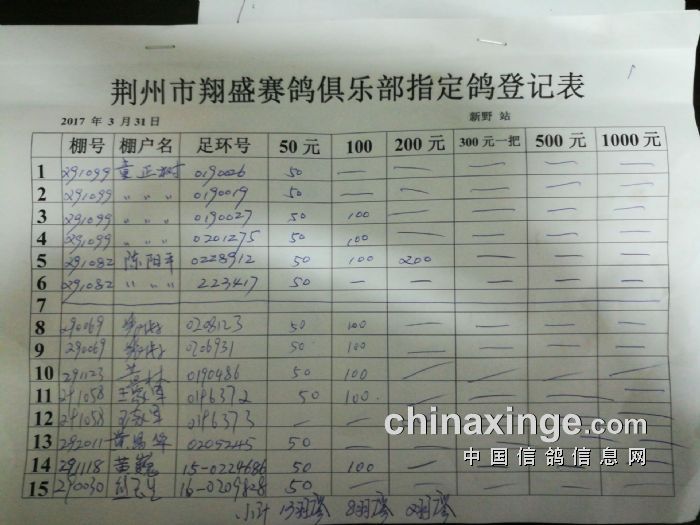 荆州市翔盛赛鸽俱乐部指定鸽登记表
2017 年 3 月 31 日 新野 站
棚号 棚户名 足环号 50 元 100 200 元 300 元一把 500 元 1000 元
1 291099 童正树 0190026 50 — — — — —
2 291099 〃 〃 〃 0190019 50 — — — — —
3 291099 〃 〃 〃 0190027 50 100 — — — —
4 291099 〃 〃 〃 0201275 50 100 — — — —
5 291082 陈阳平 0228912 50 100 200 — — —
6 291082 〃 〃 〃 223417 50 — — — — —
7
8 290069 0208123 50 100 — — — —
9 290069 0206931 50 100 — — — —
10 291123 0190486 50 100 — — — —
11 291058 0196372 50 100 — — — —
12 291058 0196373 — — — — —
13 292011 0209245 50 — — — —
14 291118 黄巍 15-0224686 50 100 — — — —
15 290030 16-0209828 50 — — — —
小计 13羽 8羽 2羽
chinaxinge.com
中国信鸽信息网